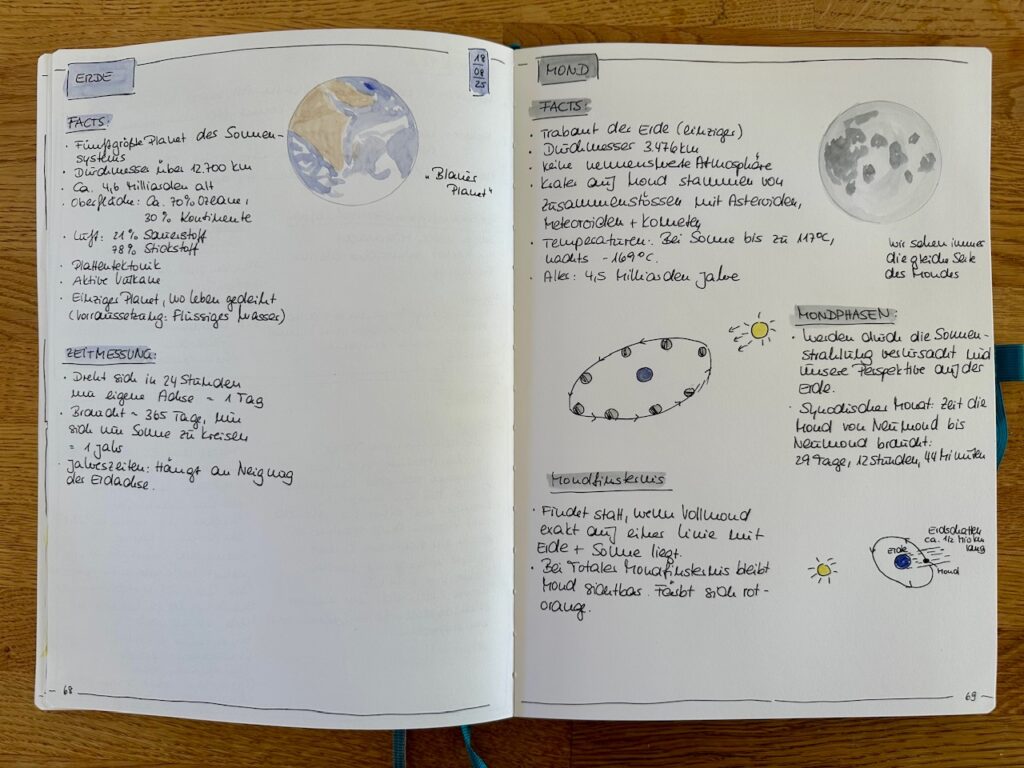 ERDE
18
08
25
FACTS:
· Fünfgrößte Planet des Sonnen-
systems
· Durchmesser über 12.700 km
· Ca. 4,6 Milliarden alt
· Oberfläche: Ca. 70% Ozeane,
30% Kontinente
· Luft: 21% Sauerstoff
78% Stickstoff
· Plattentektonik
· Aktive Vulkane
· Einziger Planet, wo Leben gedeiht
(Voraussetzung: Flüssiges Wasser)
„Blauer
Planet"
ZEITMESSUNG:
· Dreht sich in 24 Stunden
um eigene Achse = 1 Tag
· Braucht ~ 365 Tage, um
sich um Sonne zu kreisen
= 1 Jahr
· Jahreszeiten: Hängt an Neigung
der Erdachse.
68
MOND
FACTS:
· Trabant der Erde (einziger)
· Durchmesser 3.476 km
· Keine nennenswerte Atmosphäre
· Krater auf Mond stammen von
Zusammenstössen mit Asteroiden,
Meteoroiden + Kometen
· Temperaturen: Bei Sonne bis zu 117°C,
nachts -169°C.
· Alter: 4,5 Milliarden Jahre
Wir sehen immer
die gleiche Seite
des Mondes
MONDPHASEN:
· Werden durch die Sonnen-
strahlung verursacht und
unsere Perspektive auf der
Erde.
· Synodischer Monat: Zeit die
Mond von Neumond bis
Neumond braucht:
29 Tage, 12 Stunden, 44 Minuten
Mondfinsternis
· Findet statt, wenn Vollmond
exakt auf einer Linie mit
Erde + Sonne liegt.
· Bei Totaler Mondfinsternis bleibt
Mond sichtbar. Färbt sich rot-
orange.
Erdschatten
ca. 1,2 Mio km
lang
Erde
Mond
69